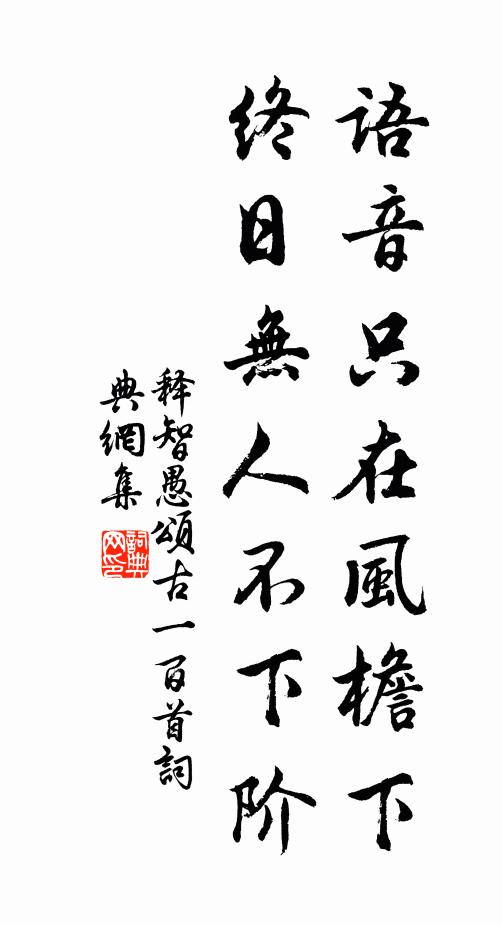 語音只在風檐下
終日無人不下阶
释智愚頌古一百首詞
典網集
詞典网印